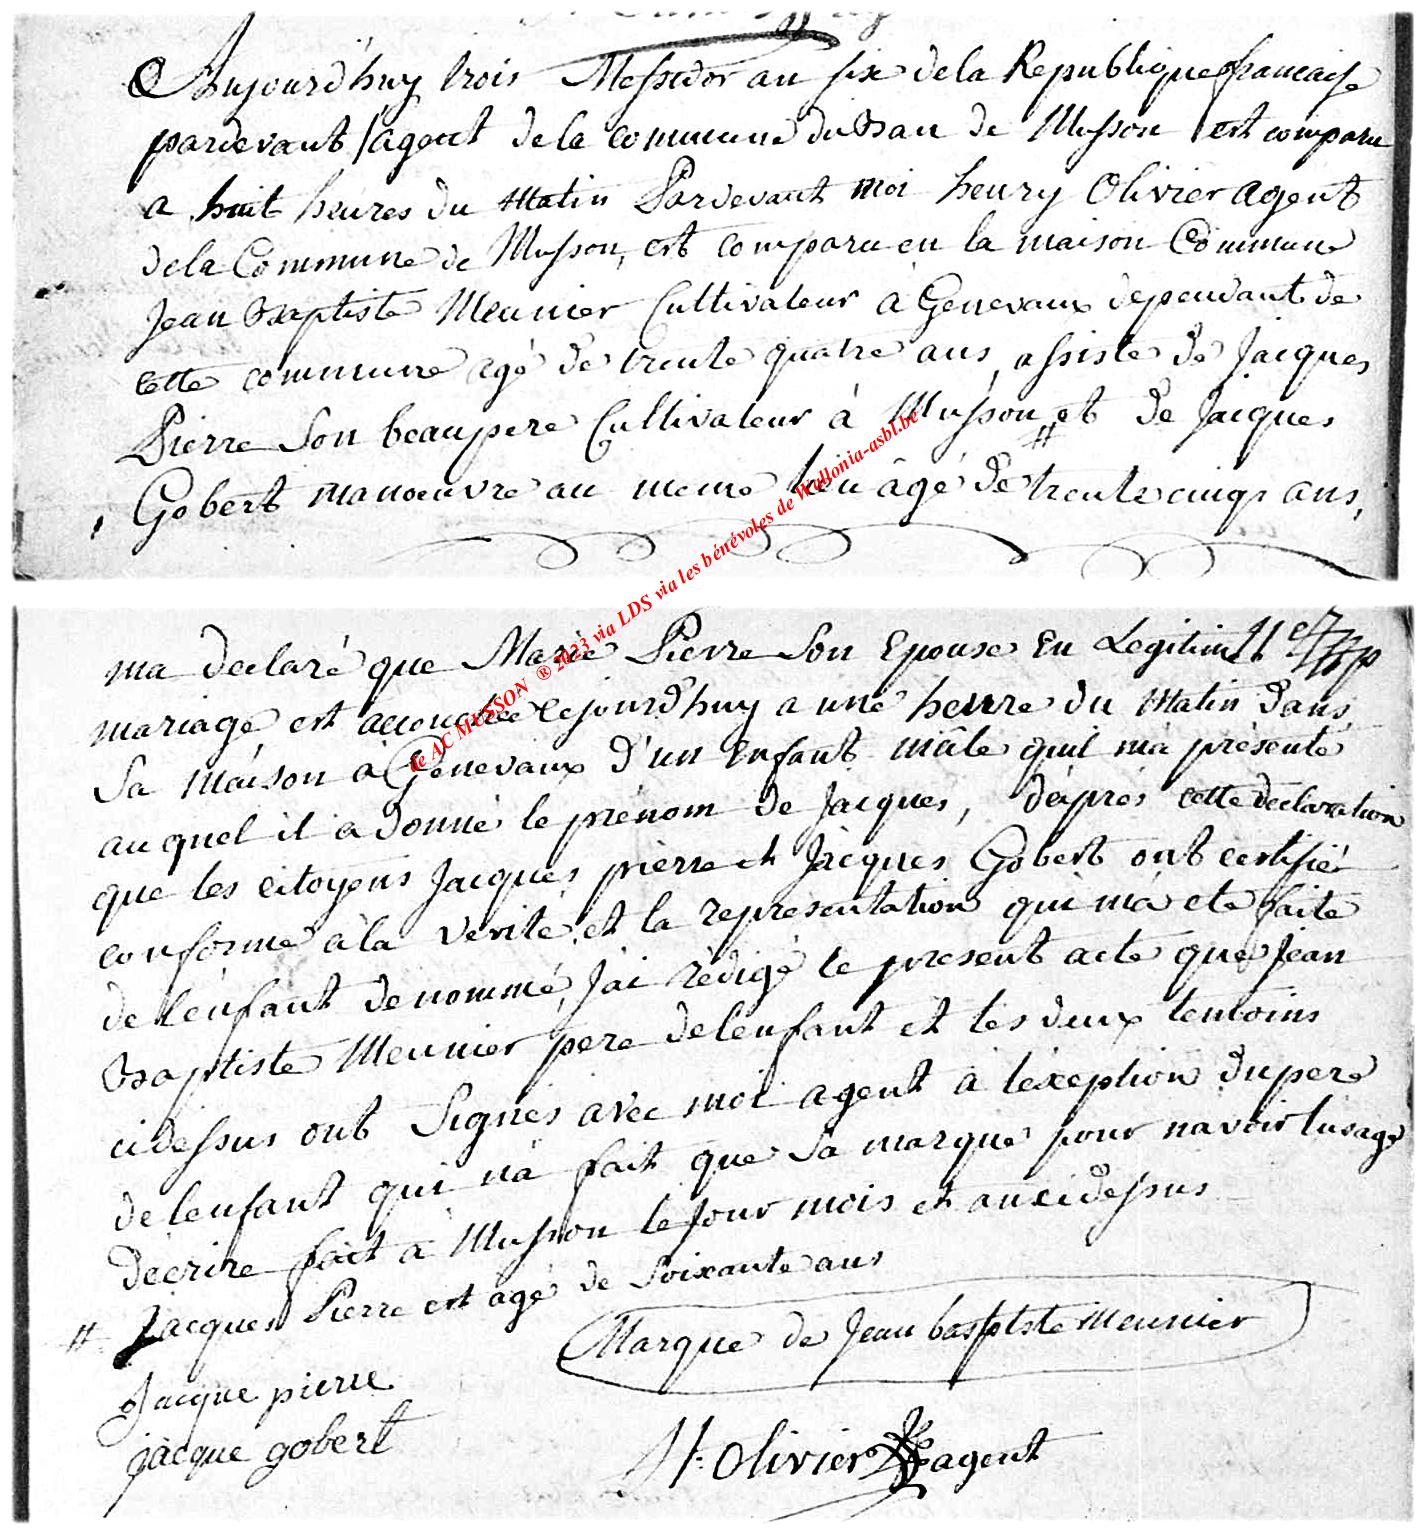 Aujourd'huy trois Messidor an six de la Republique francaise
pardevant l'agent de la commune du Ban de Musson est comparu
a huit heures du Matin Pardevant moi henry Olivier agent
de la Commune de Musson, est comparu en la maison Commune
Jean Baptiste Meunier Cultivateur à Genevaux dependant de
cette commune agé de trente quatre ans assisté de Jacques
Pierre Son beaupere Cultivateur à Musson # et de Jacques
Gobert manoeuvre au meme lieu âgé de trente cinq ans,
ma declaré que Marie Pierre Son Epouse En Legitime
mariage est accouchée cejourd'huy a une heure du Matin dans
Sa Maison à Genevaux d'un Enfant mâle quil mà présenté
auquel il a donné le prénom de Jacques, d'après cette declaration
que les citoyens Jacques pierre et Jacques Gobert ont certifié
conforme à la verité et la représentation qui mà eté faite
de l'enfant denommé, J'ai rédigé le present acte que Jean
Baptiste Meunier pere de lenfant et les deux temoins
cidessus ont Signés avec moi agent à léxeption du pere
de lenfant qui nà fait que Sa marque pour navoir lusage
décrire fait à Musson le Jour mois et an cidessus
# Jacques Pierre est agé de Soixante ans
Marque de Jean baptiste Meunier
Jacque pierre
jacque gobert
H. Olivier agent
le AC MUSSON ® 2023 via LDS via les bénévoles de Wallonia-asbl.be